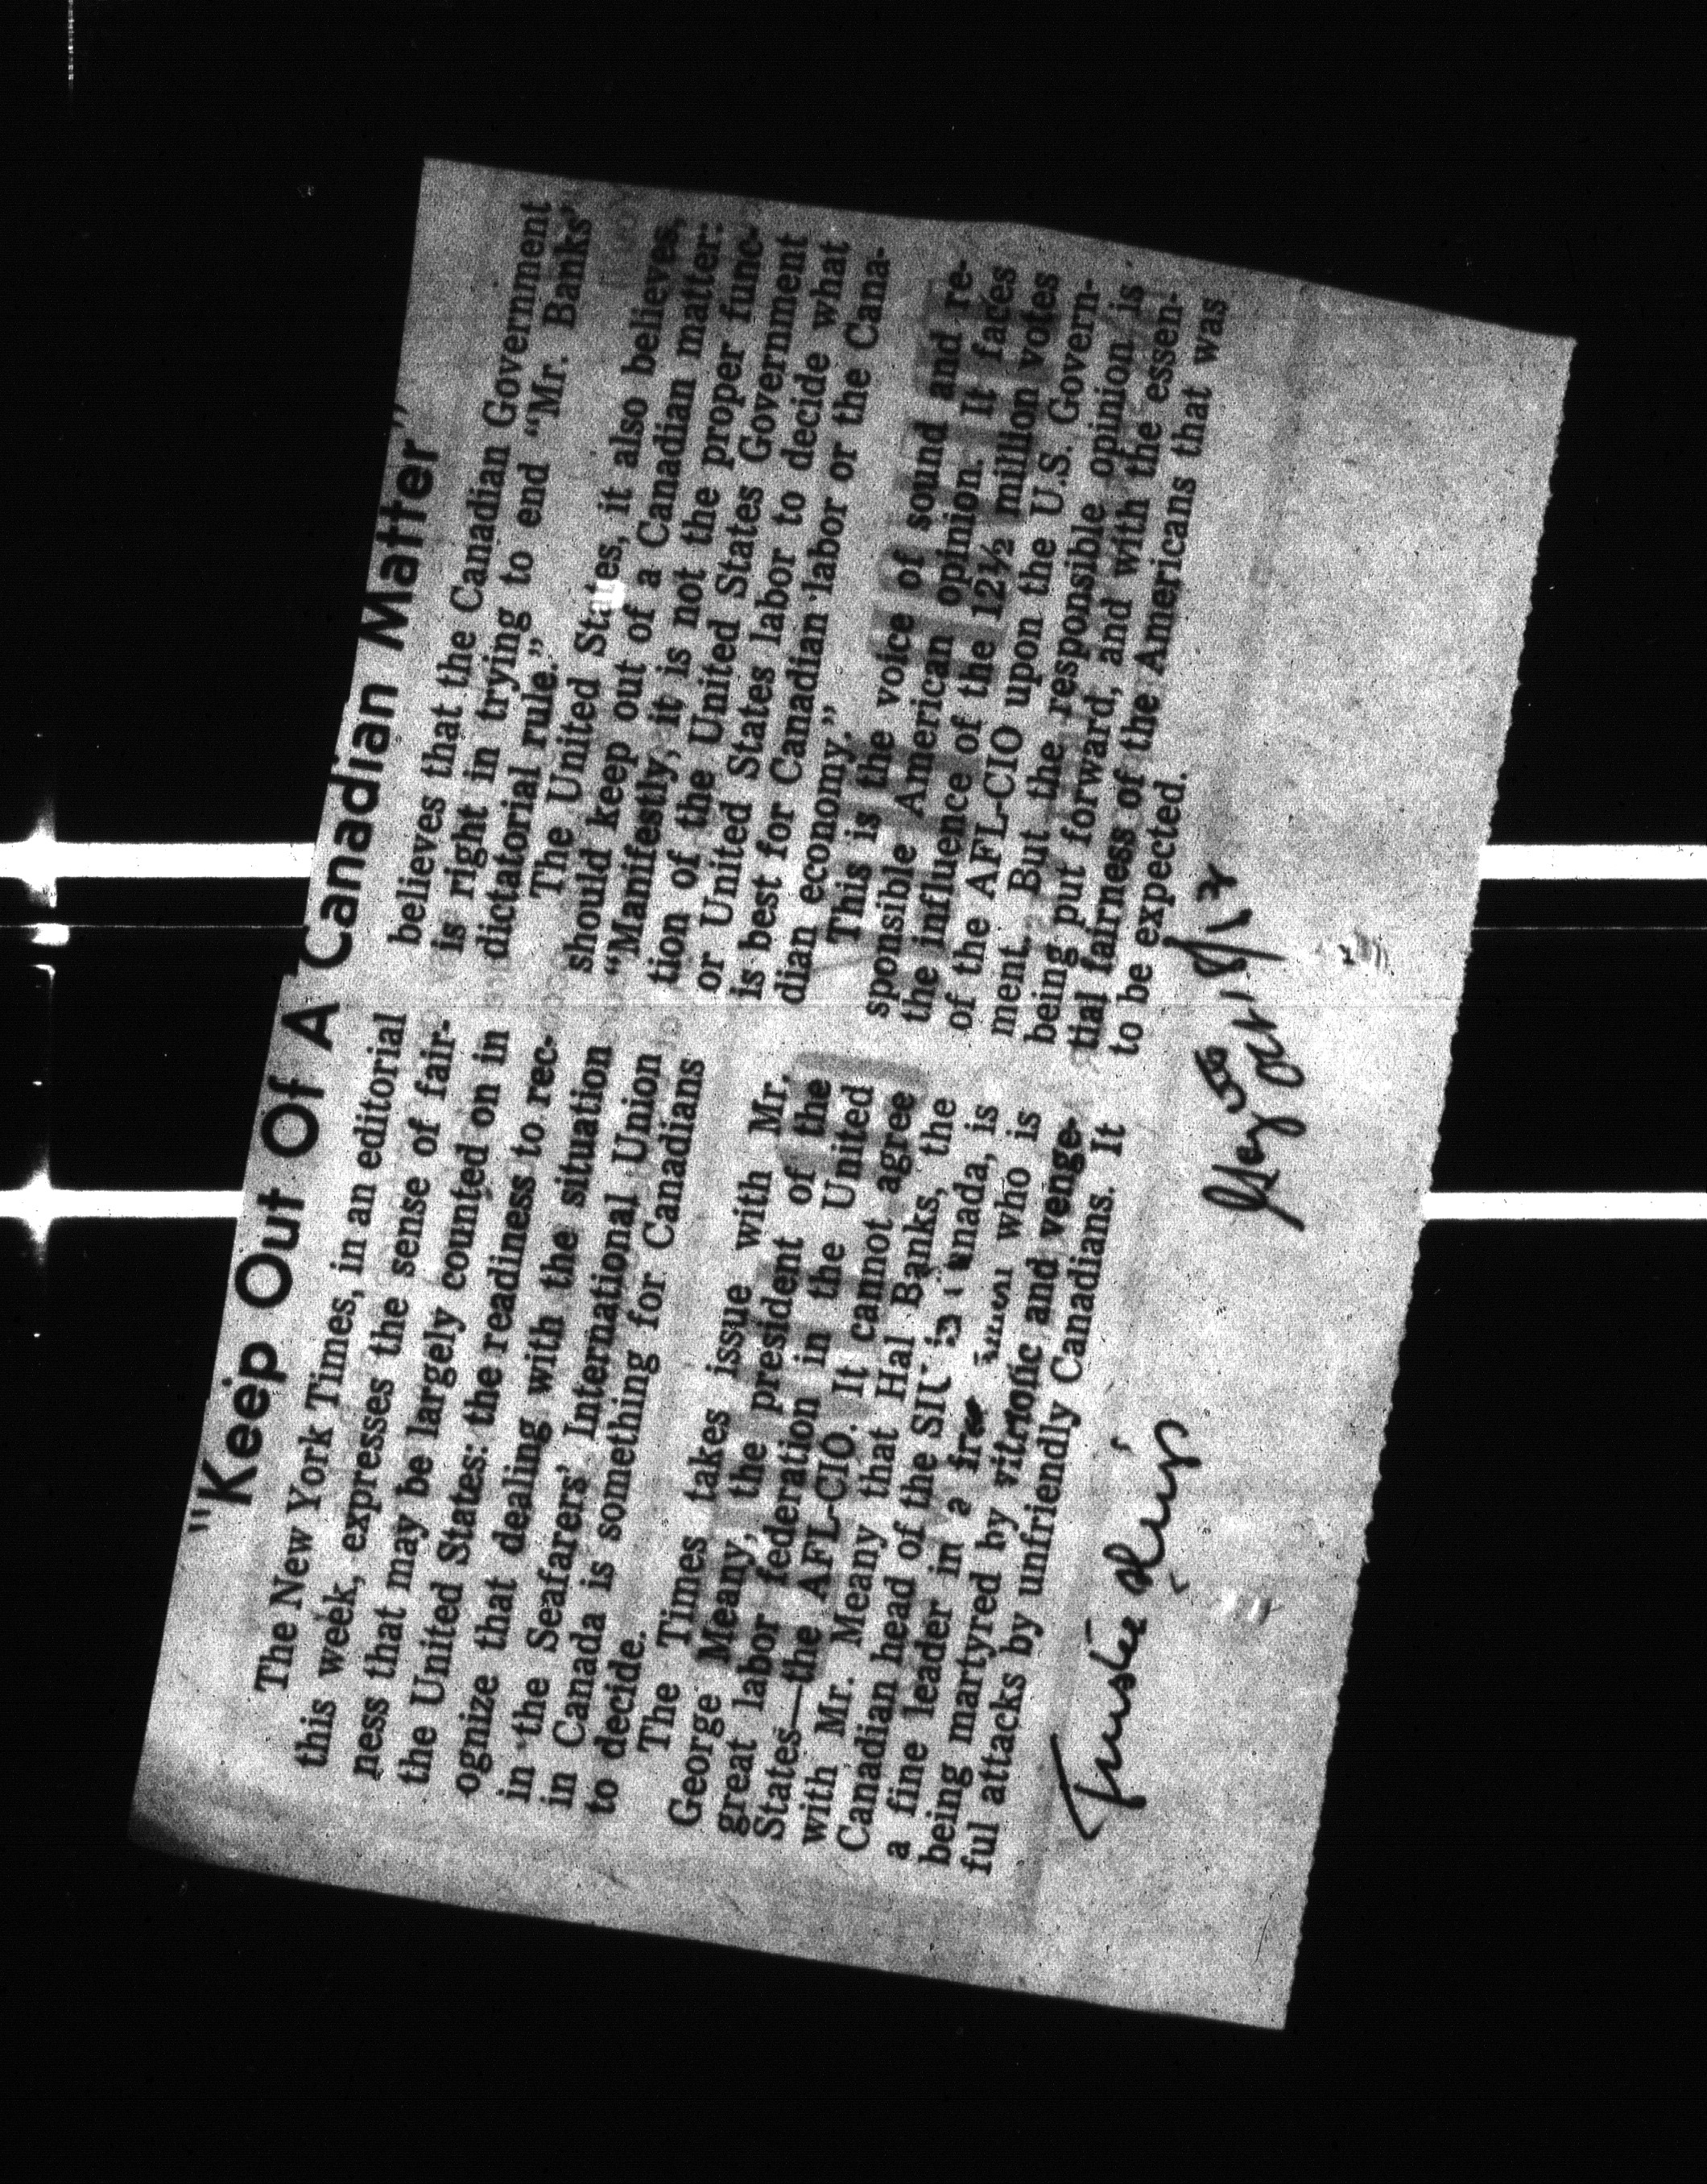 "Keep Out Of A Canadian Matter"
The New York Times, in an editorial
this week, expresses the sense of fair-
ness that may be largely counted on in
the United States: the readiness to rec-
ognize that dealing with the situation
in the Seafarers' International Union
in Canada is something for Canadians
to decide.
The Times takes issue with Mr.
George Meany, the president of the
great labor federation in the United
States—the AFL-CIO. It cannot agree
with Mr. Meany that Hal Banks, the
Canadian head of the SIU in Canada, is
a fine leader in a free union who is
being martyred by vitriolic and venge-
ful attacks by unfriendly Canadians. It
believes that the Canadian Government
is right in trying to end "Mr. Banks'
dictatorial rule."
The United States, it also believes,
should keep out of a Canadian matter:
"Manifestly, it is not the proper func-
tion of the United States Government
or United States labor to decide what
is best for Canadian labor or the Cana-
dian economy."
This is the voice of sound and re-
sponsible American opinion. It faces
the influence of the 12½ million votes
of the AFL-CIO upon the U.S. Govern-
ment. But the responsible opinion is
being put forward, and with the essen-
tial fairness of the Americans that was
to be expected.
Trustee